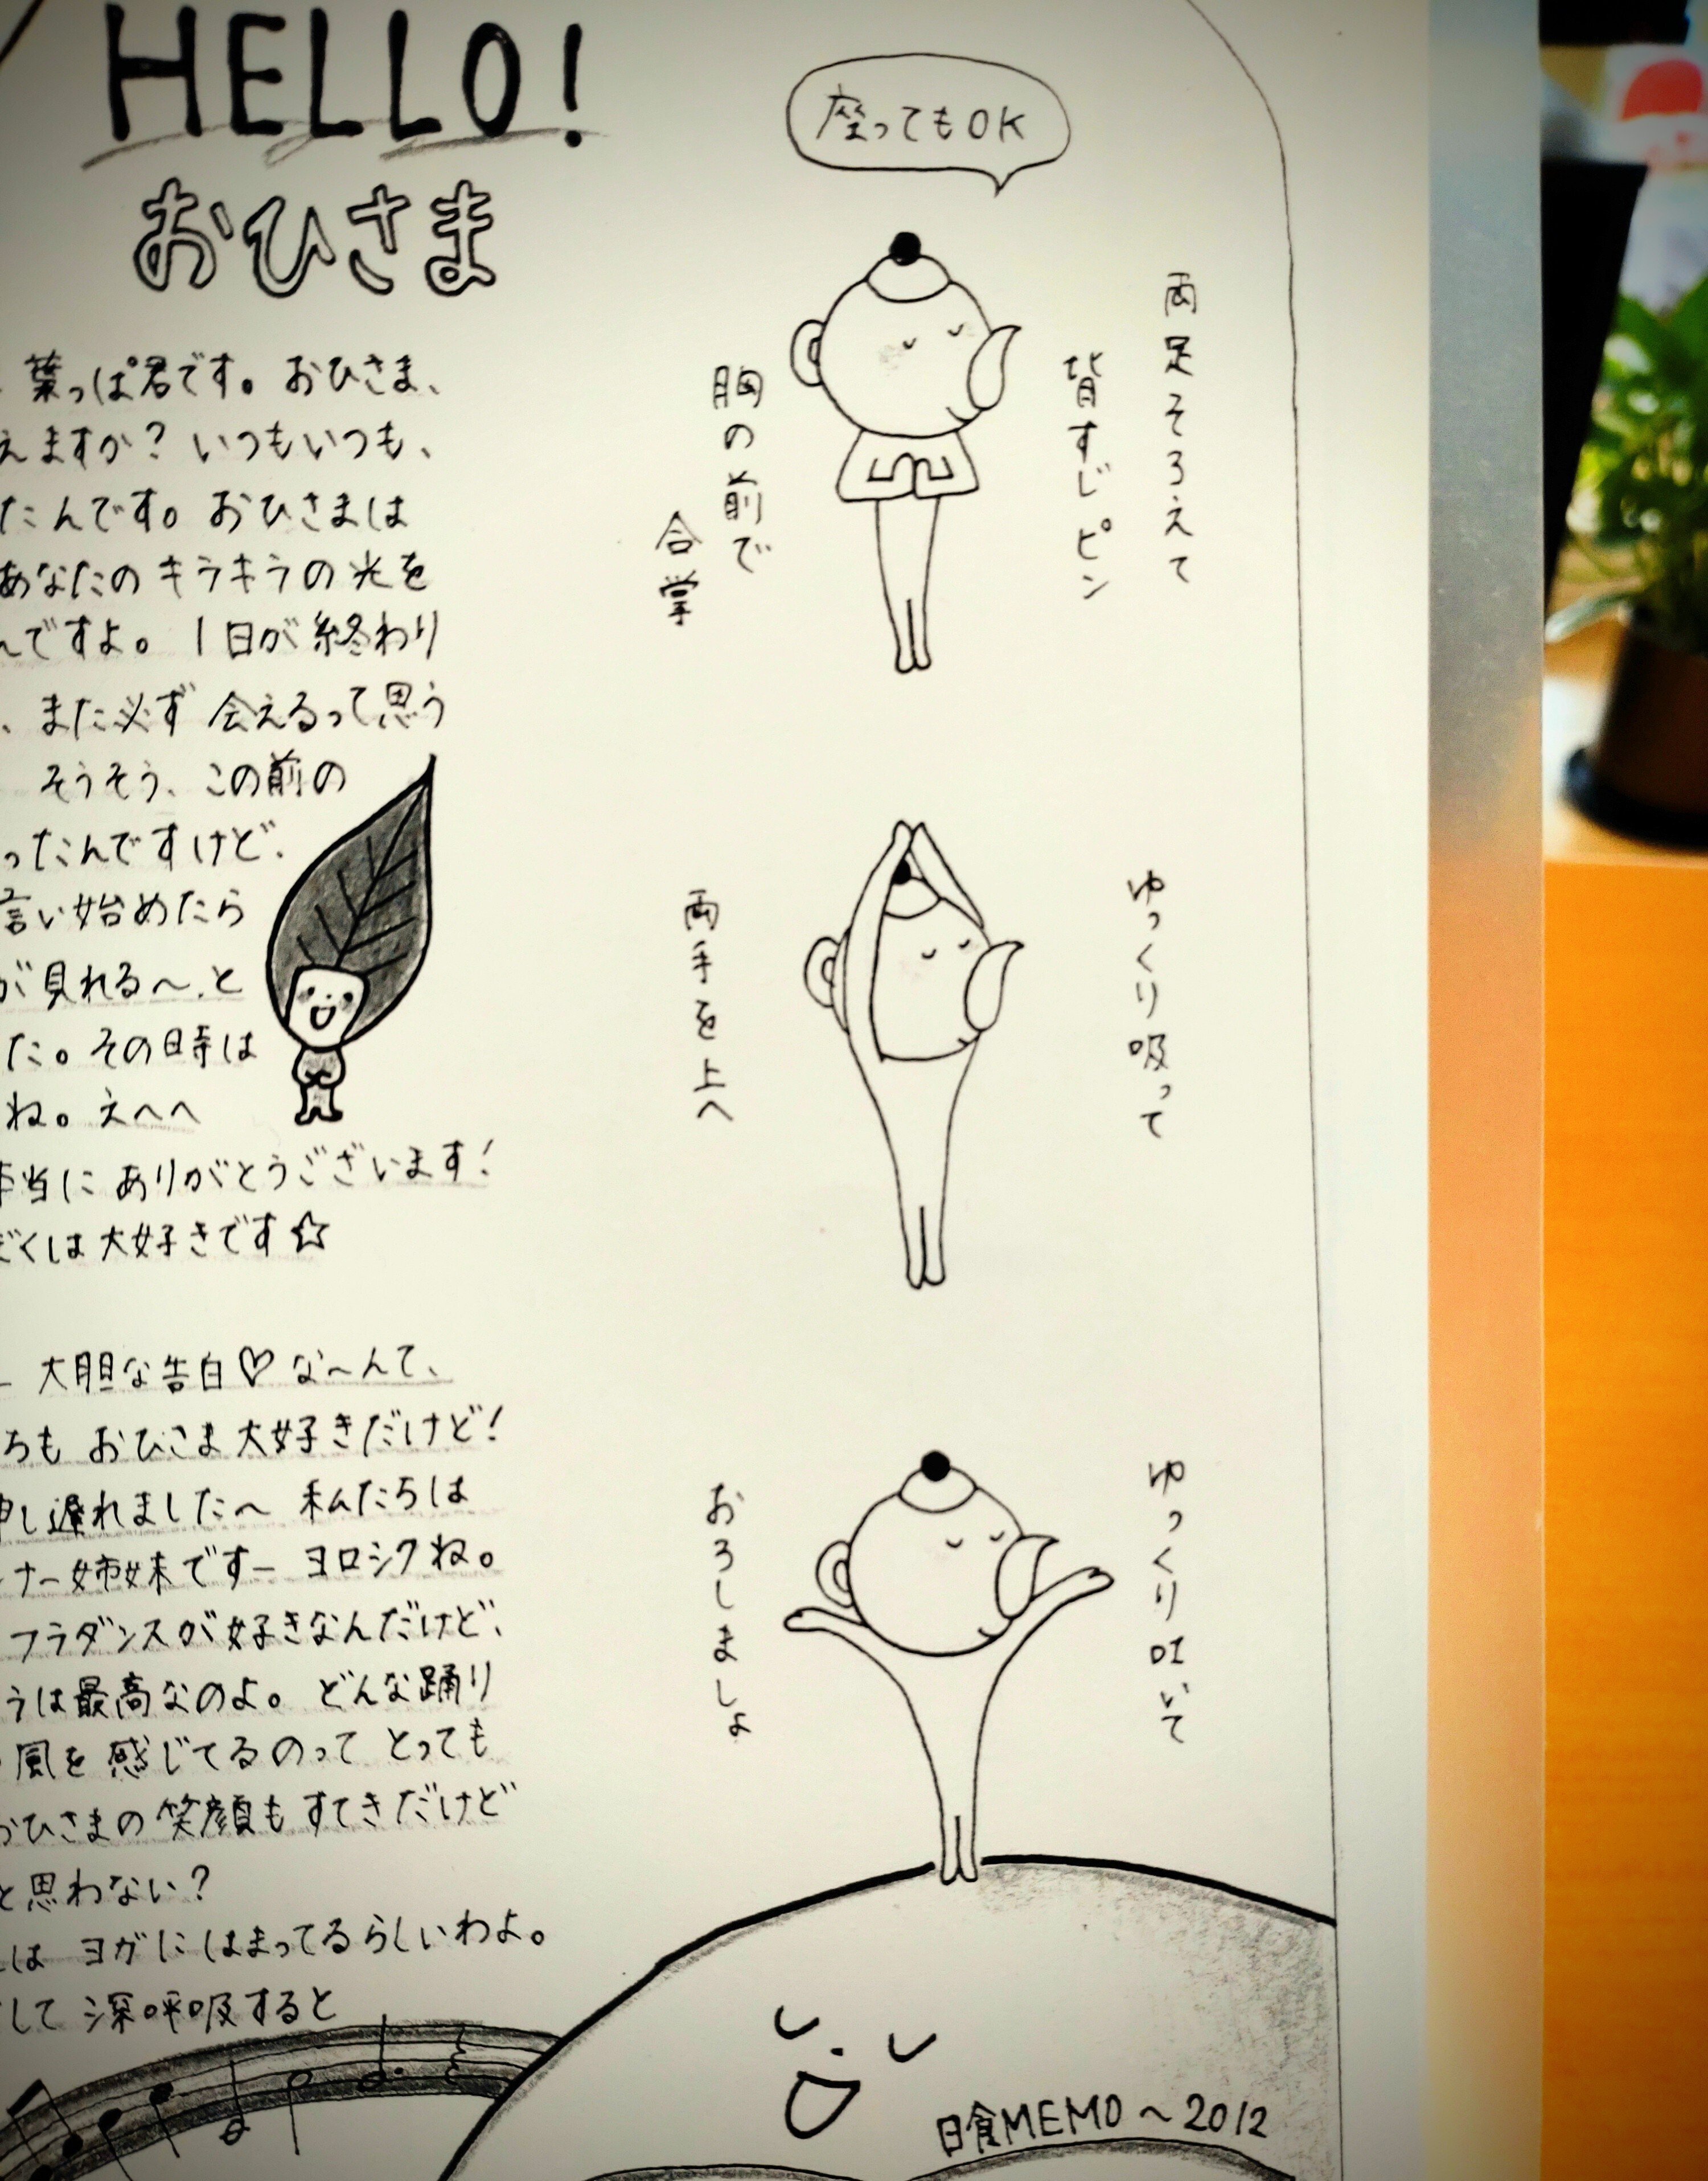 HELLO!
おひさま
葉っぱ君です。おひさま、
えますか？いつもいつも、
たんです。おひさまは
あなたのキラキラの光を
んですよ。1日が終わり
、また必ず会えるって思う
そうそう、この前の
ったんですけど、
言い始めたら
が見れる〜、と
た。その時は
ね。えへへ
本当にありがとうございます！
ぼくは大好きです☆
大胆な告白♡な〜んて、
ちもおひさま大好きだけど！
申し遅れました〜 私たちは
ナー姉妹ですー ヨロシクね。
フラダンスが好きなんだけど、
うは最高なのよ。どんな踊り
風を感じてるのってとっても
おひさまの笑顔もすてきだけど
と思わない？
はヨガにはまってるらしいわよ。
して深呼吸すると
座ってもOK
両足そろえて
背すじピン
胸の前で
合掌
ゆっくり吸って
両手を上へ
ゆっくり吐いて
おろしましょ
日食MEMO〜2012